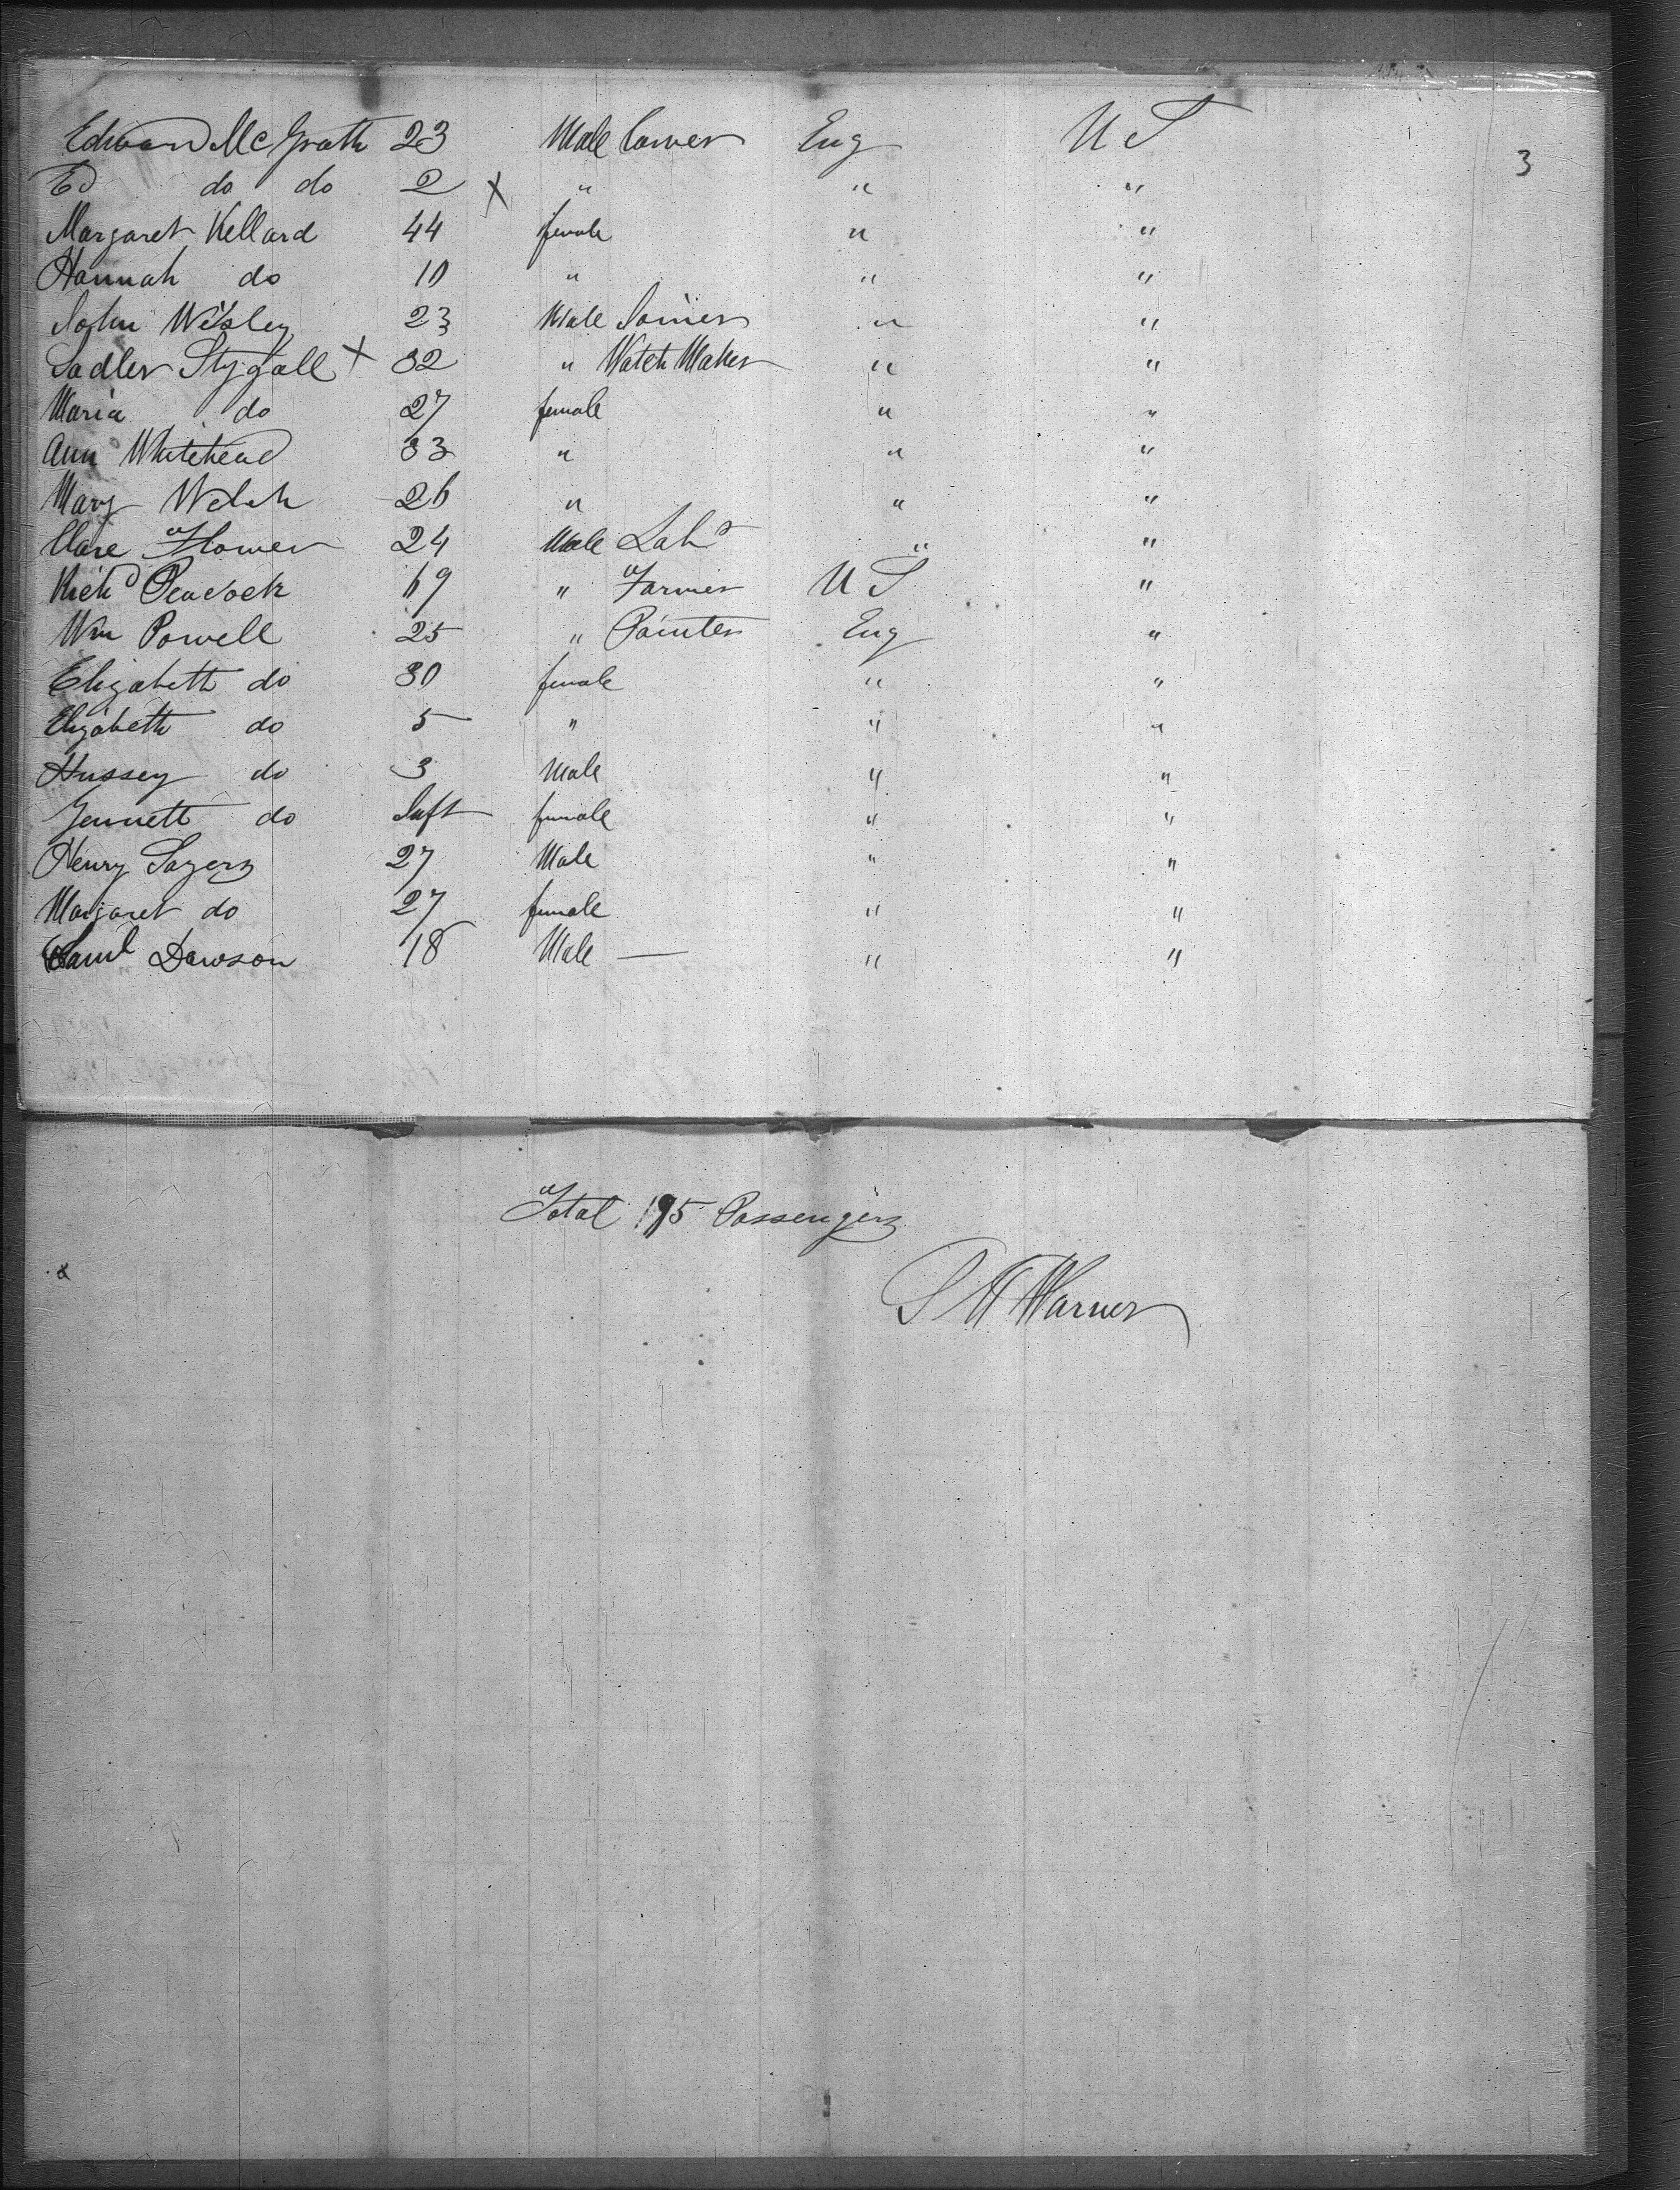 Edward McGrath 23 Male Carver Eng U S
3
Ed do do 2 X " " "
Margaret Kellard 44 female " "
Hannah do 10 " " "
John Wesley 23 Male Joiner " "
Sadler Stygall X 32 " Watch Maker " "
Maria do 27 female " "
Ann Whitehead 33 " " "
Mary Welsh 26 " " "
Clare Flower 24 Male Labr " "
Richd Peacock 69 " Farmer U S "
Wm Powell 25 " Painter Eng "
Elizabeth do 30 female " "
Elizabeth do 5 " " "
Hussey do 3 Male " "
Jennett do Inft female " "
Henry Sayers 27 Male " "
Margaret do 27 female " "
Saml Dawson 18 Male — " "
Total 195 Passengers
Warner